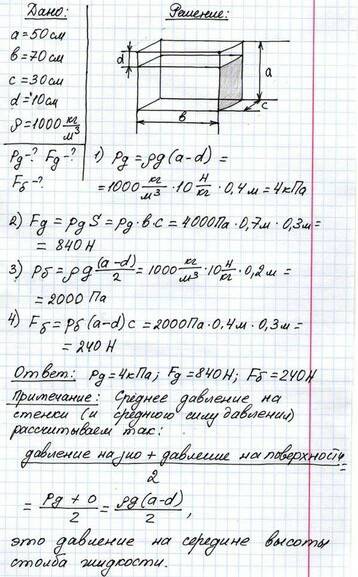 Дано:
a=50см
в=70см
с=30см
d=10см
ρ=1000 кг/м³
Pд-? Fд-?
Fб-?
Решение:
d
a
c
в
1) Pд=ρg(a-d)=
=1000 кг/м³ · 10 Н/кг · 0,4м=4кПа
2) Fд=PдS=Pд·в·с=4000Па·0,7м·0,3м=
=840Н
3) Pб=ρg(a-d)/2=1000 кг/м³ · 10 Н/кг · 0,2м=
=2000Па
4) Fб=Pб(a-d)с=2000Па·0,4м·0,3м=
=240Н
Ответ: Pд=4кПа; Fд=840Н; Fб=240Н
Примечание: Среднее давление на
стенки (и среднюю силу давления)
рассчитываем так:
давление на дно + давление на поверхность/2=
=(Pд+0)/2=ρg(a-d)/2,
это давление на середине высоты
столба жидкости.